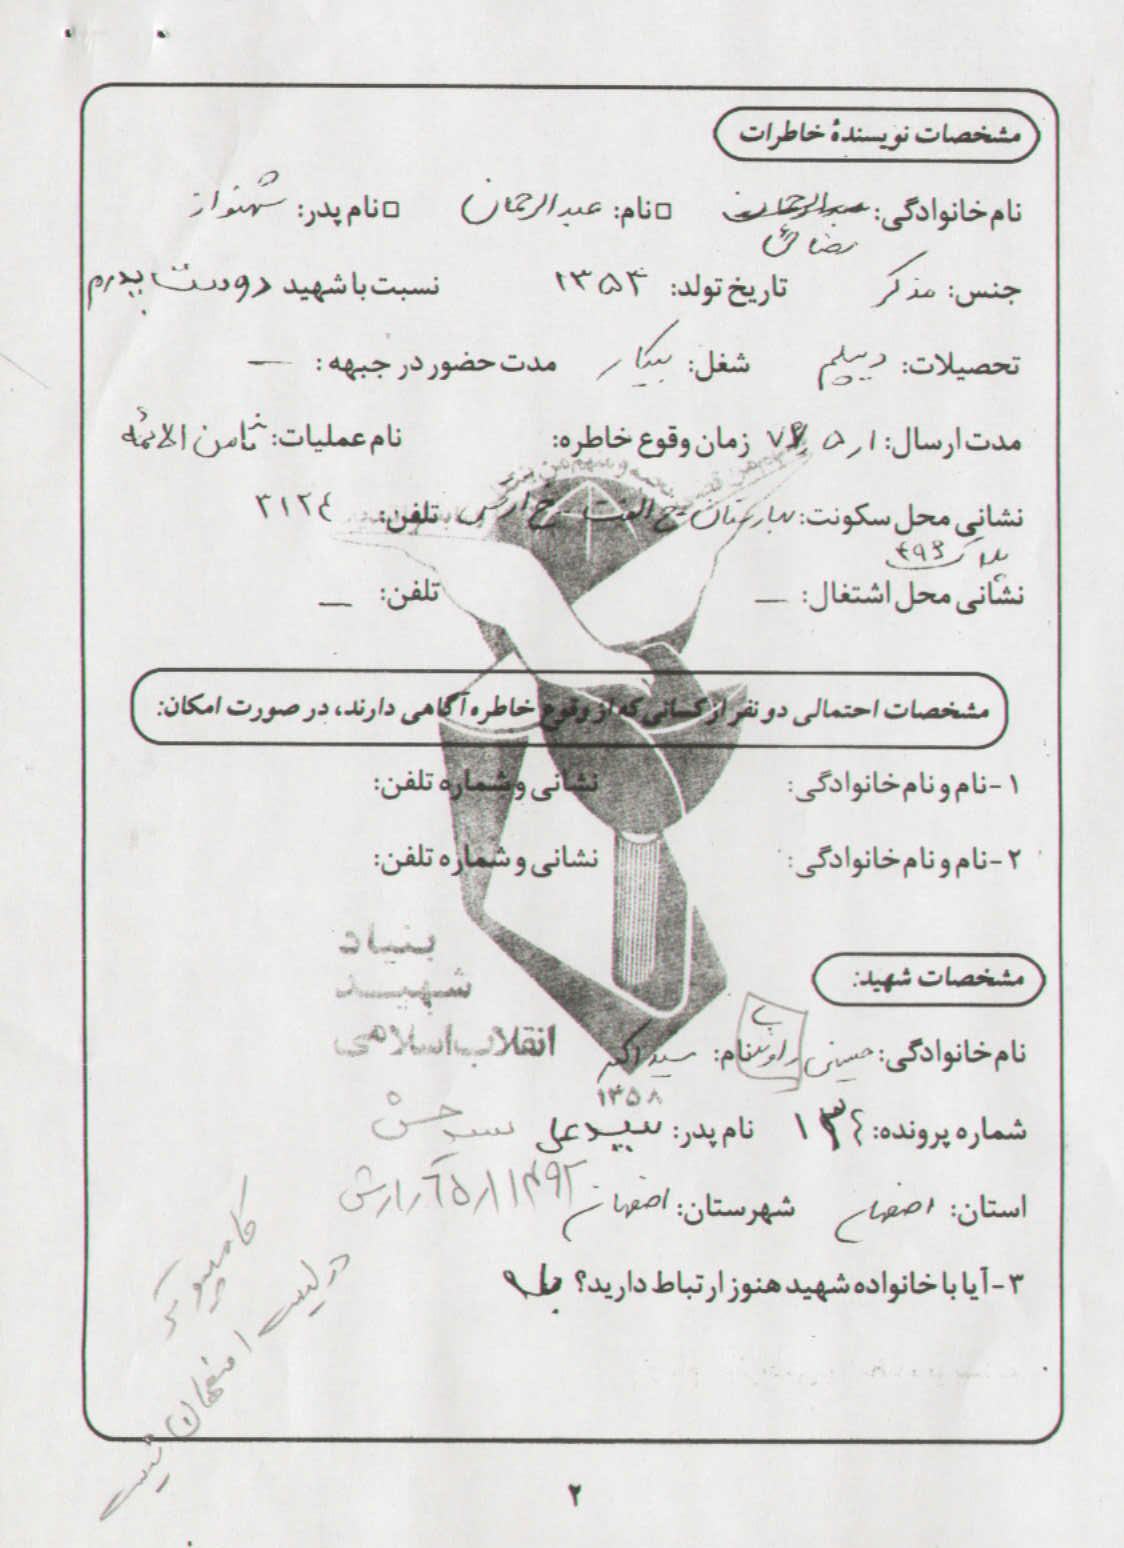 مشخصات نویسندهٔ خاطرات
نام خانوادگی: عبدالرحمان □ نام: عبدالرحمان □ نام پدر: شهنواز
رضائی
جنس: مذکر تاریخ تولد: ۱۳۵۴ نسبت با شهید دوست پدرم
تحصیلات: دیپلم شغل: بیکار مدت حضور در جبهه: —
مدت ارسال: ۱ر۵ زمان وقوع خاطره: نام عملیات: ثامن الائمه
نشانی محل سکونت: بهارستان خ الفت تلفن: ۳۱۲۴
پلاک ۴۹۶
نشانی محل اشتغال: — تلفن: —
مشخصات احتمالی دو نفر از کسانی که از وقوع خاطره آگاهی دارند، در صورت امکان:
۱-نام و نام خانوادگی: نشانی و شماره تلفن:
۲-نام و نام خانوادگی: نشانی و شماره تلفن:
بنیاد
شهید
انقلاب اسلامی
۱۳۵۸
مشخصات شهید:
نام خانوادگی: حسینی نام: سید اکبر
شماره پرونده: نام پدر: سید علی سید حسن
استان: اصفهان شهرستان: اصفهان
۳-آیا با خانواده شهید هنوز ارتباط دارید؟ بله
کامپیوتر
در لیست اصفهان نیست
۲